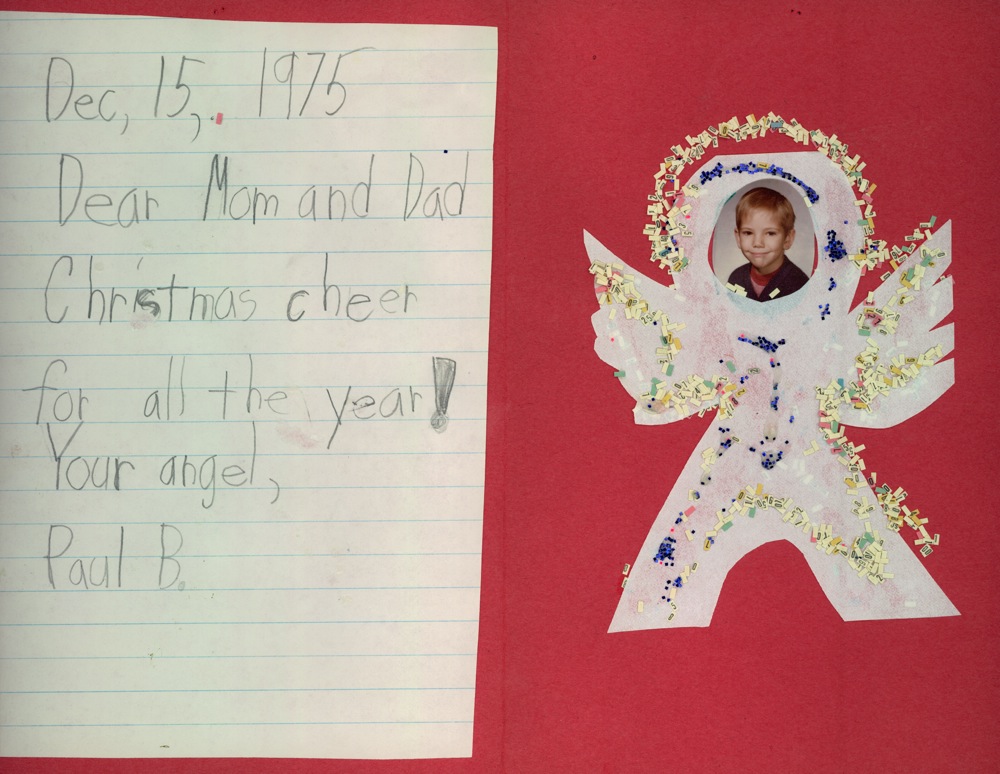 Dec, 15, 1975
Dear Mom and Dad
Christmas cheer
for all the year!
Your angel,
Paul B.